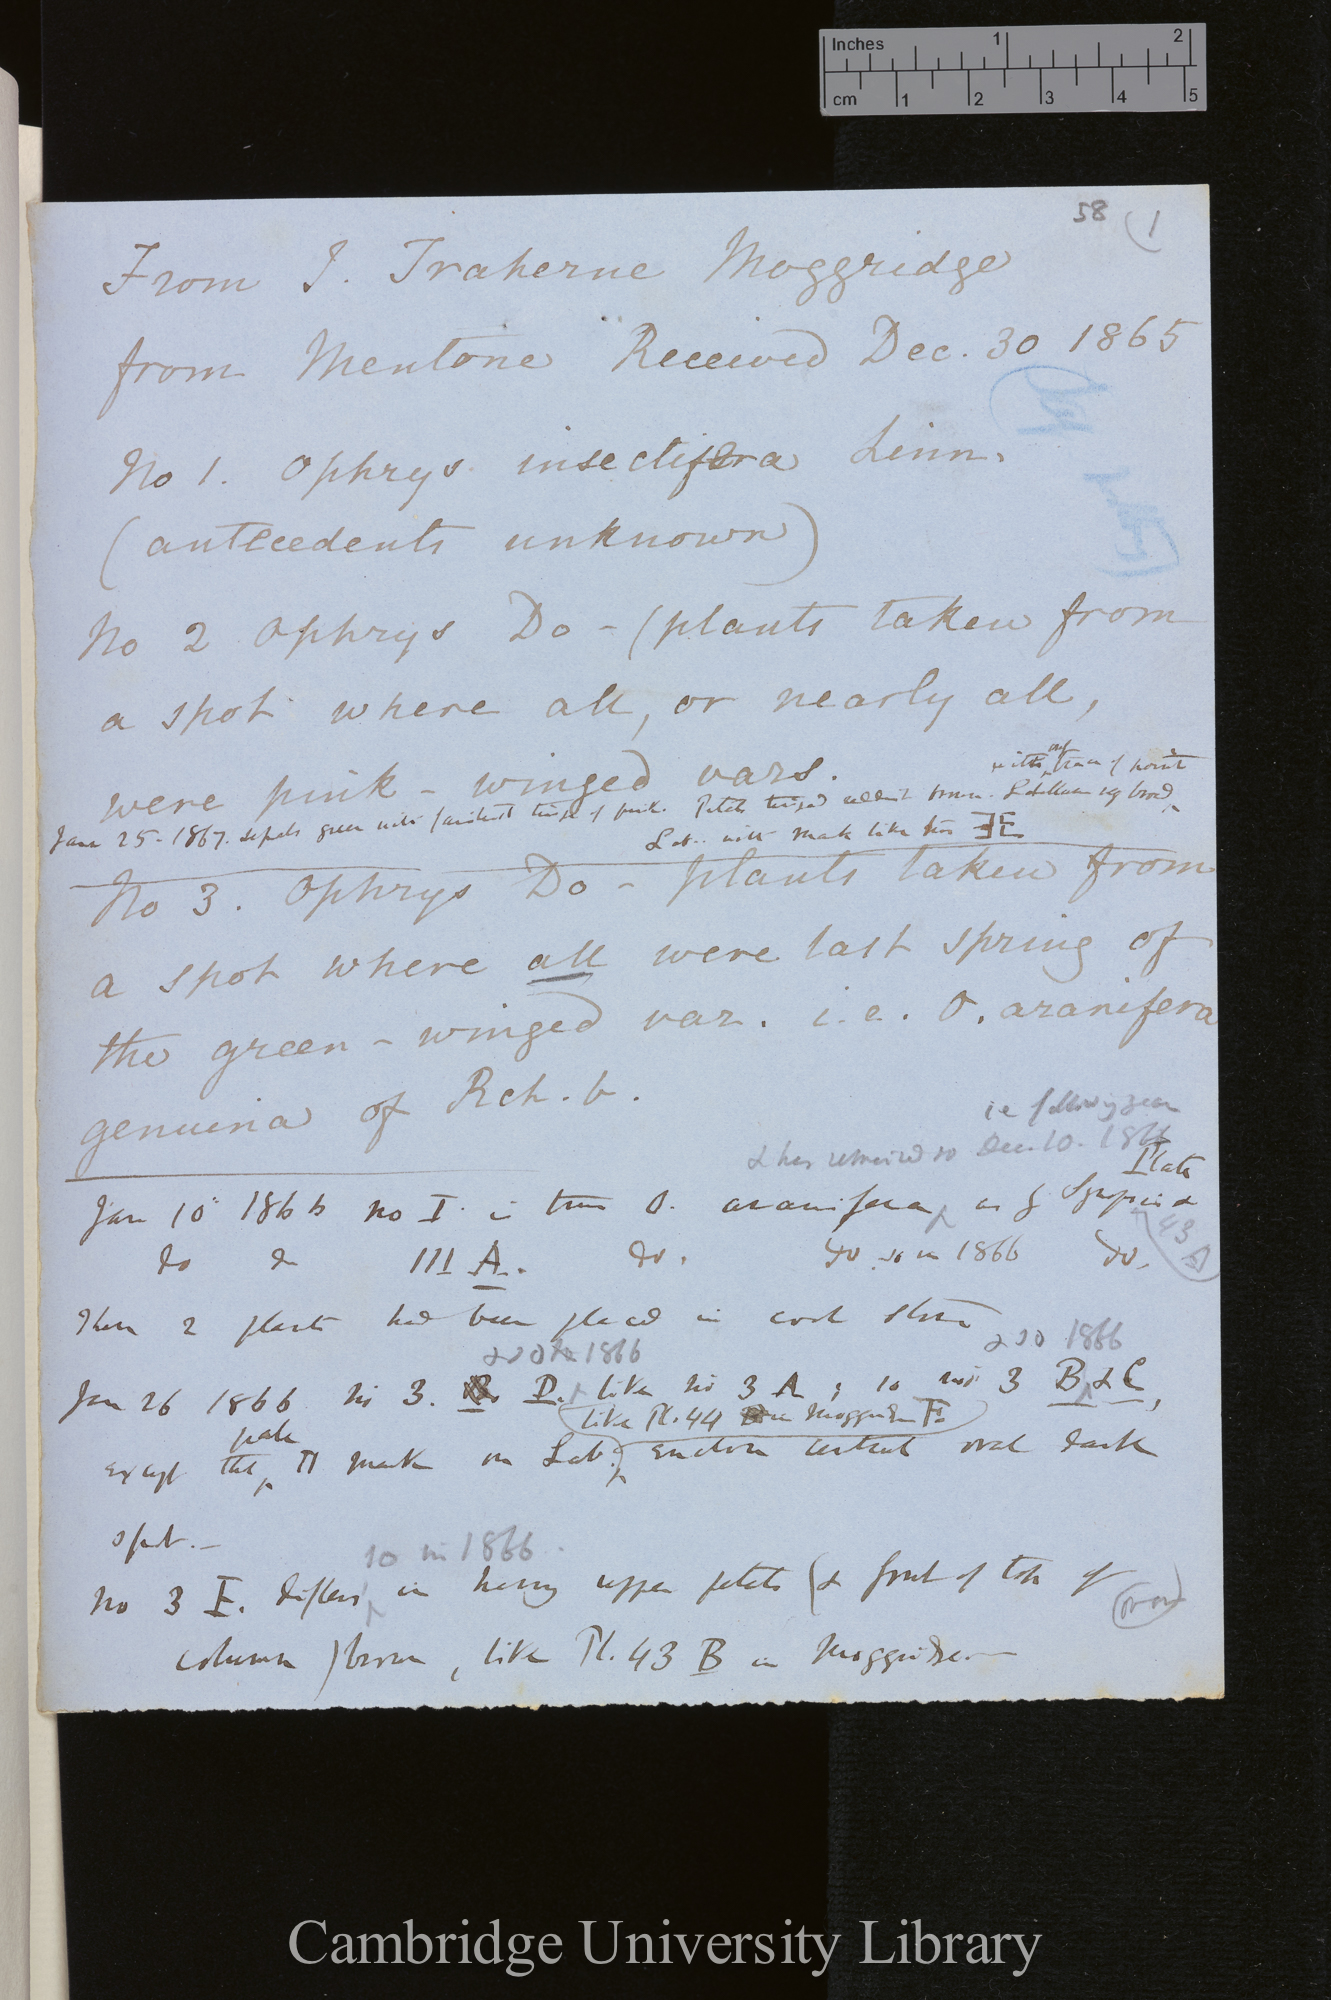 Inches 1 2
cm 1 2 3 4 5
58 (1
From J. Traherne Moggridge
from Mentone Received Dec. 30 1865
No 1. Ophrys insectifera Linn.
(antecedents unknown)
No 2 Ophrys Do - (plants taken from
a spot where all, or nearly all,
were pink - winged vars.
with trace of point
Jan 25 - 1867. sepals green with faintest tinge of pink. Petals tinged reddish brown.
Lab. with mark like this
No 3. Ophrys Do - plants taken from
a spot where all were last spring of
the green - winged var. i.e. O. aranifera
genuina of Rch. b.
ie following year
& has remained so Dec. 10. 1866
Plate
Jan 10 1866 No I. is true O. aranifera, as of Synopsis &
43
do do III A. do. do so in 1866 do.
These 2 plants had been placed in cool stove
& so 1866 & so 1866
Jan 26 1866 No 3. D. like No 3 A; so is 3 B & C,
like Pl. 44 in Moggridge F.
pale
except that π mark on Lab. encloses central oval dark
spot.—
so in 1866.
No 3 E. differs in having upper petals (& front of top of
(over)
column) brown, like Pl. 43 B in Moggridge.—
Cambridge University Library